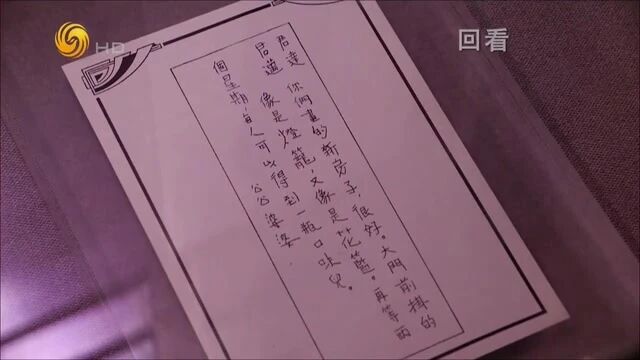 HD
回看
君達 你們畫的新房子,很好。大門前掛的
君邁 像是燈籠,又像是花籃。再等兩
個星期,每人可以得到一瓶口味兒。
公公婆婆.